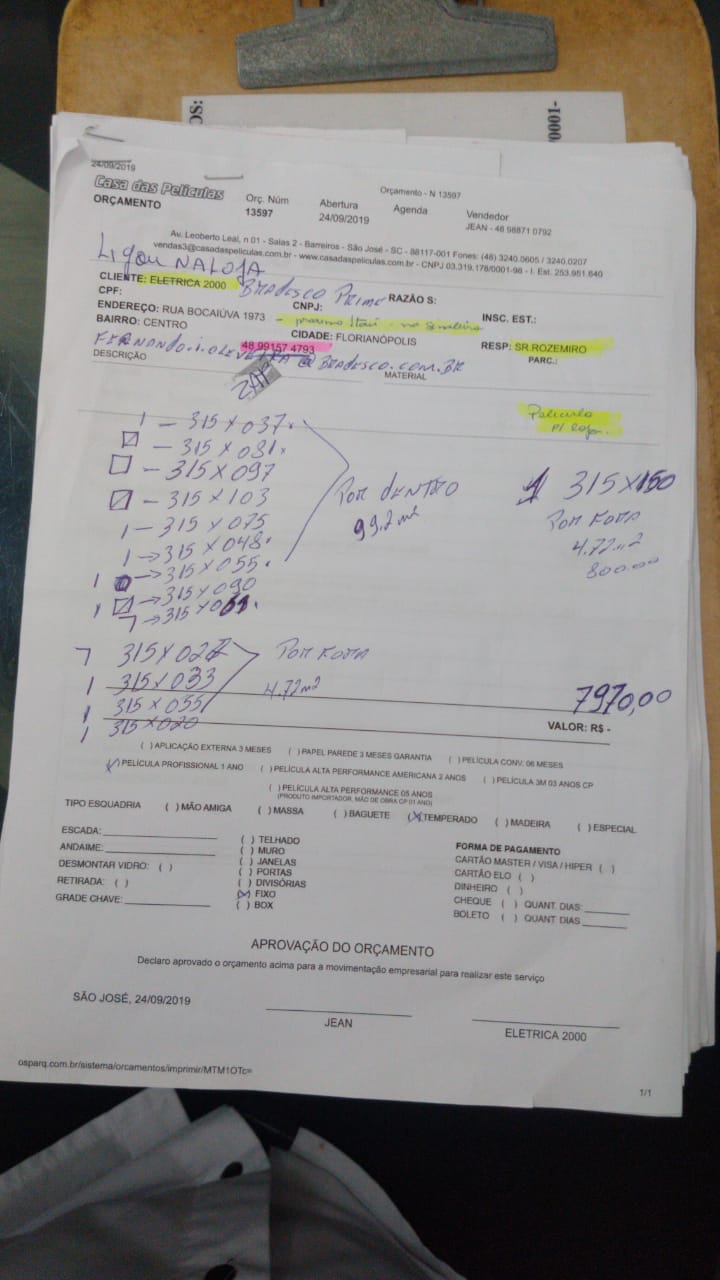 OS:
0001-
24/09/2019
Orçamento - N 13597
Casa das Peliculas
ORÇAMENTO
Orç. Núm
13597
Abertura
24/09/2019
Agenda
Vendedor
JEAN - 48 98871 0792
Av. Leoberto Leal, n 01 - Salas 2 - Barreiros - São José - SC - 88117-001 Fones: (48) 3240.0605 / 3240.0207
vendas3@casadaspeliculas.com.br - www.casadaspeliculas.com.br - CNPJ 03.319.178/0001-98 - I. Est. 253.951.640
Ligou NA LOJA
CLIENTE: ELETRICA 2000 BRADESCO PRIME RAZÃO S:
CPF: CNPJ: INSC. EST.:
ENDEREÇO: RUA BOCAIÚVA 1973 - proximo Itaú - na
BAIRRO: CENTRO CIDADE: FLORIANÓPOLIS RESP: SR.ROZEMIRO
48 99157 4793 PARC.:
FERNANDO.I.OLIVEIRA@BRADESCO.COM.BR
DESCRIÇÃO ZAP MATERIAL
Pelicula
p/
1 - 315 X 037.
- 315 X 081.
- 315 X 097
- 315 X 103
1 - 315 X 075
1 -> 315 X 048.
1 -> 315 X 055.
1 -> 315 X 090
315 X
POR DENTRO
99.2 m²
1 315 X 150
POR FORA
4.72 m2
800.00
315 X
1 315 X 033
1 315 X 055
1 315 X 020
POR FORA
4.72 m²
7970,00
VALOR: R$ -
( ) APLICAÇÃO EXTERNA 3 MESES ( ) PAPEL PAREDE 3 MESES GARANTIA ( ) PELÍCULA CONV. 06 MESES
(X) PELÍCULA PROFISSIONAL 1 ANO ( ) PELÍCULA ALTA PERFORMANCE AMERICANA 2 ANOS ( ) PELÍCULA 3M 03 ANOS CP
( ) PELÍCULA ALTA PERFORMANCE 05 ANOS
(PRODUTO IMPORTADOR, MÃO DE OBRA CP 01 ANO)
TIPO ESQUADRIA ( ) MÃO AMIGA ( ) MASSA ( ) BAGUETE (X) TEMPERADO ( ) MADEIRA ( ) ESPECIAL
ESCADA:
ANDAIME:
DESMONTAR VIDRO: ( )
RETIRADA: ( )
GRADE CHAVE:
( ) TELHADO
( ) MURO
( ) JANELAS
( ) PORTAS
( ) DIVISÓRIAS
(X) FIXO
( ) BOX
FORMA DE PAGAMENTO
CARTÃO MASTER / VISA / HIPER ( )
CARTÃO ELO ( )
DINHEIRO ( )
CHEQUE ( ) QUANT. DIAS:
BOLETO ( ) QUANT DIAS
APROVAÇÃO DO ORÇAMENTO
Declaro aprovado o orçamento acima para a movimentação empresarial para realizar este serviço
SÃO JOSÉ, 24/09/2019
JEAN
ELETRICA 2000
osparq.com.br/sistema/orcamentos/imprimir/MTM1OTc=
1/1